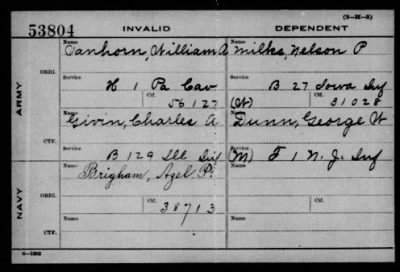 (3-M-5)
53804 INVALID DEPENDENT
Name Name
Vanhorn, William A Milks, Nelson P
ORIG. Service Service
H 1 Pa Cav B 27 Iowa Inf
ARMY Ctf. Ctf.
56127 (W) 31028
Name Name
Givin, Charles A. Dunn, George W
CTF. Service Service
B 129 Ill Inf (M) F 1 N. J. Inf
Name Name
Brigham, Azel P.
ORIG. Service Service
NAVY Ctf. Ctf.
38713
Name Name
CTF. Service Service